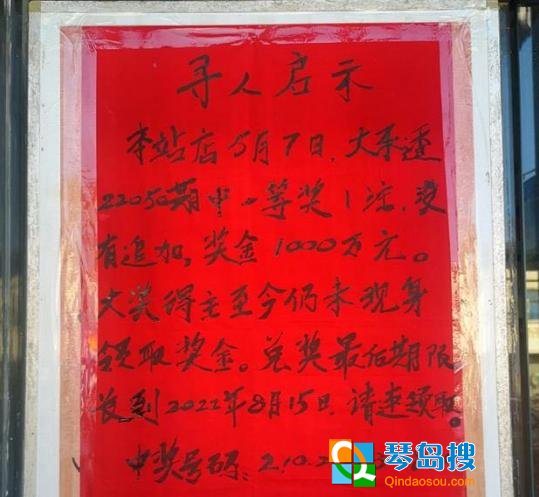 寻人启示
本站店5月7日,大乐透
22050期中一等奖1注,没
有追加,奖金1000万元。
大奖得主至今仍未现身
领取奖金。兑奖最后期限
长到2022年8月15日,请速领取。
中奖号码:2.10.2
琴岛搜
Qindaosou.com